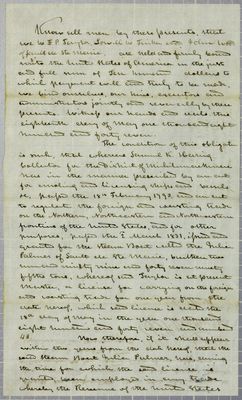 Know all men by these presents, that
we
of Sault Ste Marie are held and firmly bound
unto the United States of America in the just
and full sum of Ten hundred dollars to
which payment well and truly to be made
we bind ourselves, our heirs, executors and
administrators jointly and severally by these
presents. Witness our hands and seals this
eighteenth day of May one thousand eight
hundred and forty seven.
The condition of this obligation
is such, that whereas Samuel K. Haring
Collector for the District of Michilimackinac
has in the manner prescribed by an act
for enrolling and licensing ships and vessels
&c, passed the 18th February 1793, and an act
to regulate the foreign and coasting trade
on the Northern, Northeastern and Northwestern
frontiers of the United States and for other
purposes, passed the 2 March 1831,
granted for the Steam Boat called the Julia
Palmer of Sault Ste Marie, burthen two
hundred and ninety nine and forty nine ninety
fifths tons, whereof Taylor is at present
Master, a license for carrying on the foreign
and coasting trade for one year from the
date hereof, which said license is dated the
18th day of May in the year one thousand
eight hundred and forty seven and numbered
Now therefore, if it shall appear
within two years from the date hereof, that the
said Steam Boat Julia Palmer has, during
the time for which the said license is
granted, been employed in any trade
whereby the Revenue of the United States